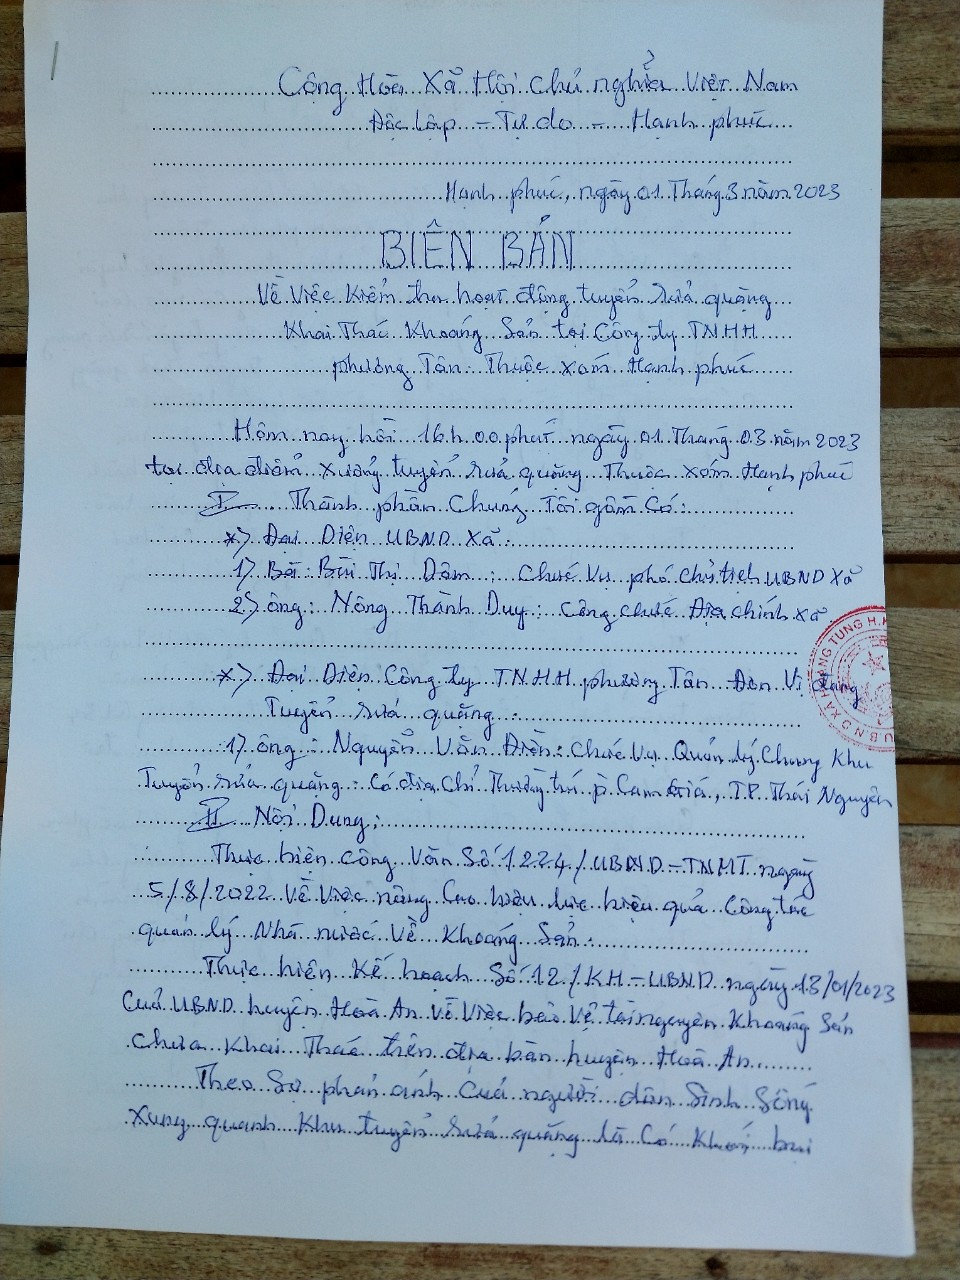 Cộng Hòa Xã Hội Chủ nghĩa Việt Nam
Độc lập - Tự do - Hạnh phúc
Hạnh phúc, ngày 01 Tháng 3 năm 2023
BIÊN BẢN
Về Việc Kiểm tra hoạt động tuyển rửa quặng
Khai Thác Khoáng Sản tại Công ty TNHH
phương Tân Thuộc xóm Hạnh phúc
Hôm nay hồi 16h 00 phút ngày 01 Tháng 03 năm 2023
tại địa điểm xưởng tuyển rửa quặng Thuộc xóm Hạnh phúc
I Thành phần Chúng Tôi gồm Có:
*) Đại Diện UBND Xã:
1) Bà Bùi Thị Dâm: Chức Vụ phó chủ tịch UBND xã
2) ông: Nông Thành Duy: Công chức Địa chính xã
*) Đại Diện Công ty TNHH phương Tân Đơn Vị đang
Tuyển rửa quặng:
1) ông: Nguyễn Văn Điền: Chức Vụ Quản lý Chung Khu
Tuyển rửa quặng: Có địa Chỉ Thường trú p. Cam Giá, T.P Thái Nguyên
II Nội Dung:
Thực hiện công Văn Số 1224/UBND-TNMT ngày
5/8/2022 Về Việc nâng Cao hiệu lực hiệu quả Công tác
quản lý Nhà nước Về Khoáng Sản.
Thực hiện Kế hoạch Số 12/KH-UBND ngày 13/01/2023
Của UBND huyện Hoà An Về Việc bảo Vệ tài nguyên Khoáng Sản
chưa Khai Thác trên địa bàn huyện Hoà An
Theo Sự phản ánh Của người dân Sinh Sống
Xung quanh Khu tuyển rửa quặng là Có Khói bụi
U.B.N.D XÃ HOÀNG TUNG H.